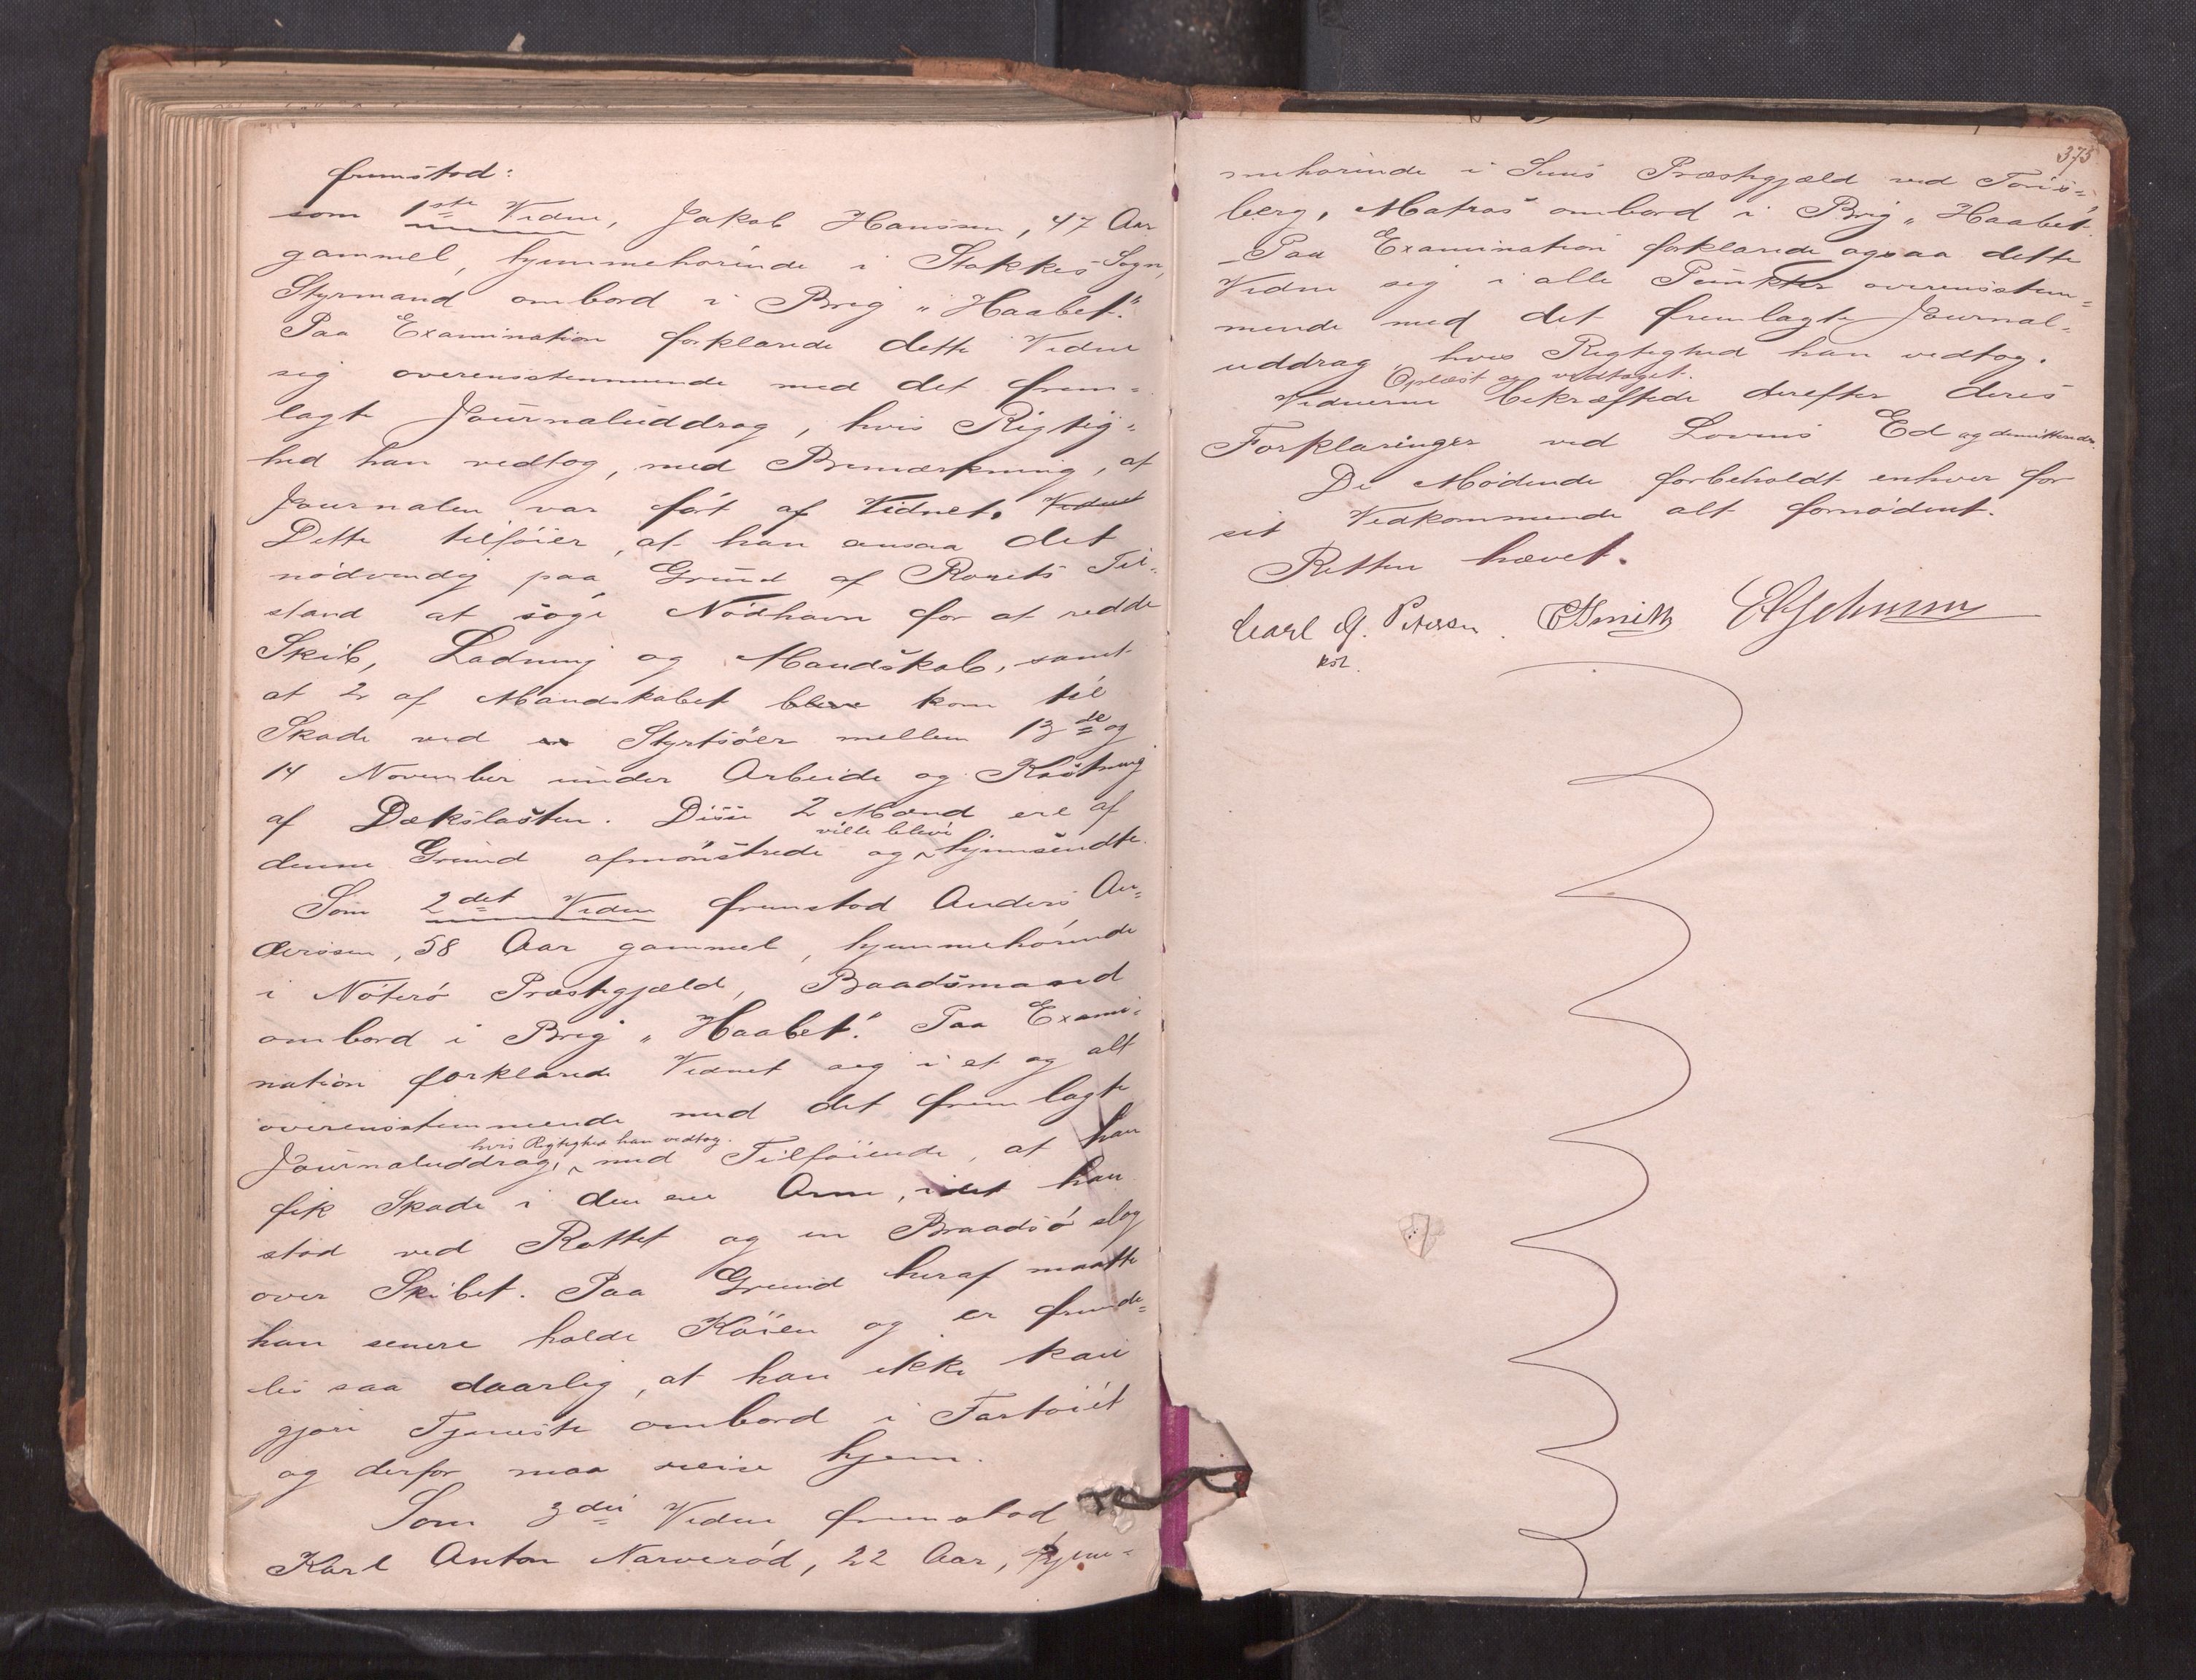 fremstod:
som 1ste Vidne, Jakob Hanssen, 47 Aar
gammel, hjemmehörende i Stokkes Sogn,
Styrmand ombord i Brig "Haabet".
Paa Examination forklarede dette Vidne
sig overensstemmende med det frem-
lagte Journaluddrag, hvis Rigtig-
hed han vedtog, med Bemærkning, at
Journalen var fört af Vidnet. Vidnet
Dette tilföier, at han ansaa det
nödvendig paa Grund af Rorets Til-
stand at söge Nödhavn for at redde
Skib, Ladning og Mandskab, samt
at 2 af Mandskabet bleve kom til
Skade ved en Styrtsöer mellem 13de og
14 November under Arbeide og Kastning
af Dækslasten. Disse 2 Mænd ere af
ville blive
denne Grund afmönstrede og hjemsendte.
Som 2det Vidne fremstod Anders An-
dersen, 58 Aar gammel, hjemmehörende
i Nöterö Præstegjæld, Baadsmand
ombord i Brig "Haabet". Paa Exami-
nation forklarede Vidnet sig i et og alt
overensstemmende med det fremlagte
hvis Rigtighed han vedtog.
Journaluddrag, med Tilföiende, at han
fik Skade i den ene Arm, idet han
stod ved Rattet og en Braadsö slog
over Skibet. Paa Grund heraf maatte
han senere holde Köien og er fremde-
les saa daarlig, at han ikke kan
gjöre Tjeneste ombord i Fartöiet
og derfor maa reise hjem.
Som 3die Vidne fremstod
Karl Anton Narveröd, 22 Aar, hjem-
375
mehörende i Sems Præstegjæld ved Töns-
berg, Matros ombord i Brig "Haabet".
Paa Examination forklarede ogsaa dette
Vidne sig i alle Punkter overensstem-
mende med det fremlagte Journal-
uddrag hvis Rigtighed han vedtog.
Oplæst og vedtaget.
Vidnerne bekræftede derefter deres
Forklaringer ved Lovens Ed og demitteredes.
De Mödende forbeholdt enhver for
sit Vedkommende alt fornödent.
Retten hævet.
Carl G. Petersen. CSmith
kst.